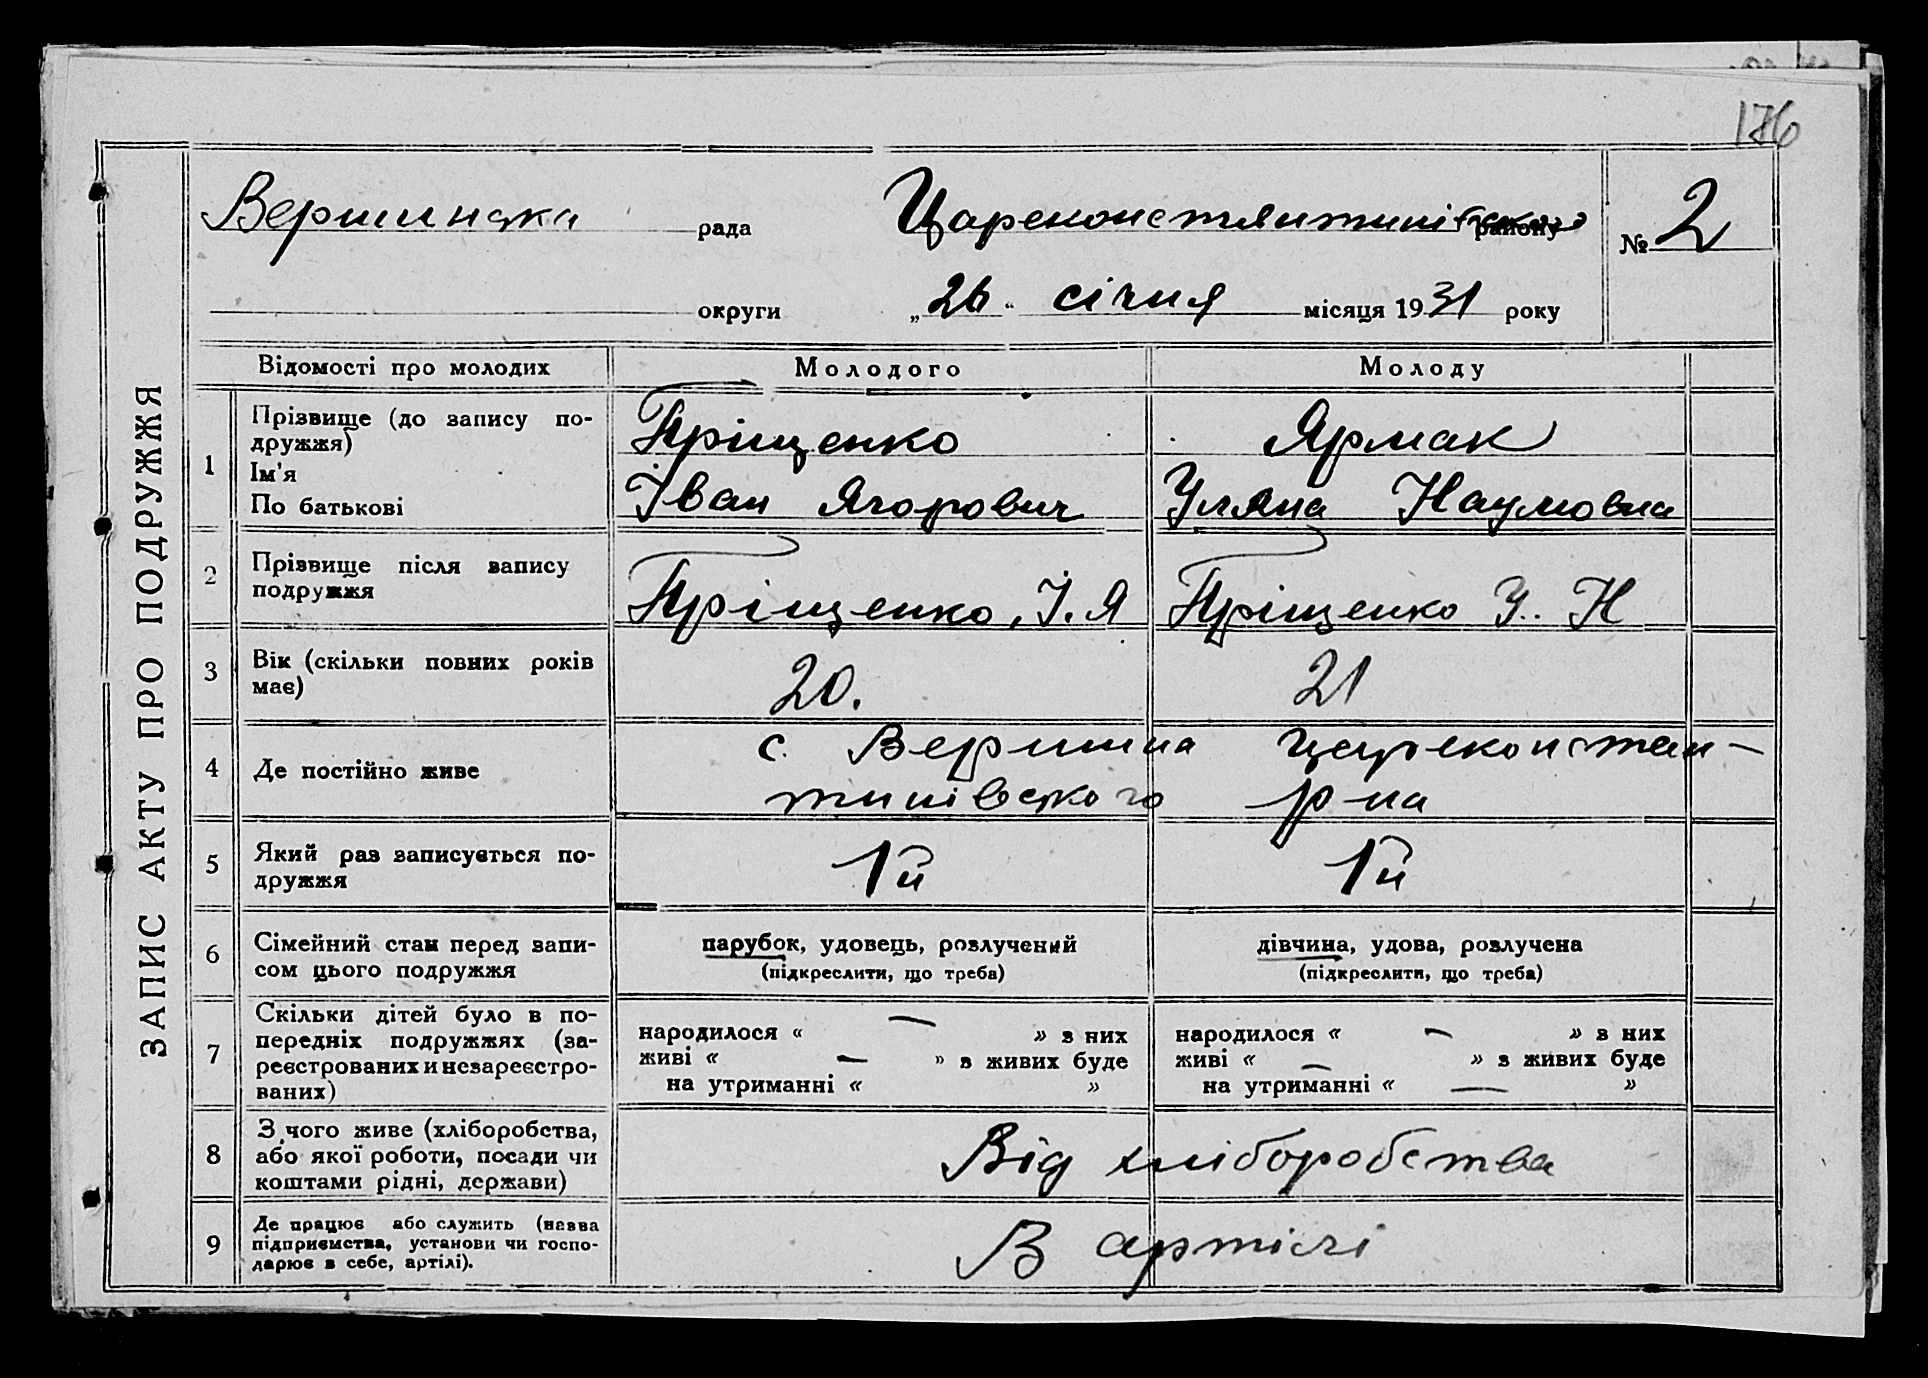 176
Вершинська рада Цареконстянтинівського району № 2
округи „26“ січня місяця 1931 року
ЗАПИС АКТУ ПРО ПОДРУЖЖЯ
Відомості про молодих Молодого Молоду
1 Прізвище (до запису по-
дружжя) Пріщенко Ярмак
Ім'я
По батькові Іван Ягорович Уляна Наумовна
2 Прізвище після запису
подружжя Пріщенко, І. Я Пріщенко У.. Н
3 Вік (скільки повних років
має) 20. 21
4 Де постійно живе с. Вершина Цареконстан-
тинівського р-на
5 Який раз записується по-
дружжя 1й 1й
6 Сімейний стан перед запи-
сом цього подружжя
парубок, удовець, розлучений
(підкреслити, що треба)
дівчина, удова, розлучена
(підкреслити, що треба)
7 Скільки дітей було в по-
передніх подружжях (за-
реєстрованих и незареєстро-
ваних)
народилося « — » з них
живі « — » з живих буде
на утриманні « »
народилося « — » з них
живі « — » з живих буде
на утриманні « — »
8 З чого живе (хліборобства,
або якої роботи, посади чи
коштами рідні, держави)
Від хліборобства
9 Де працює або служить (назва
підприємства, установи чи госпо-
дарює в себе, артілі).
В артілі